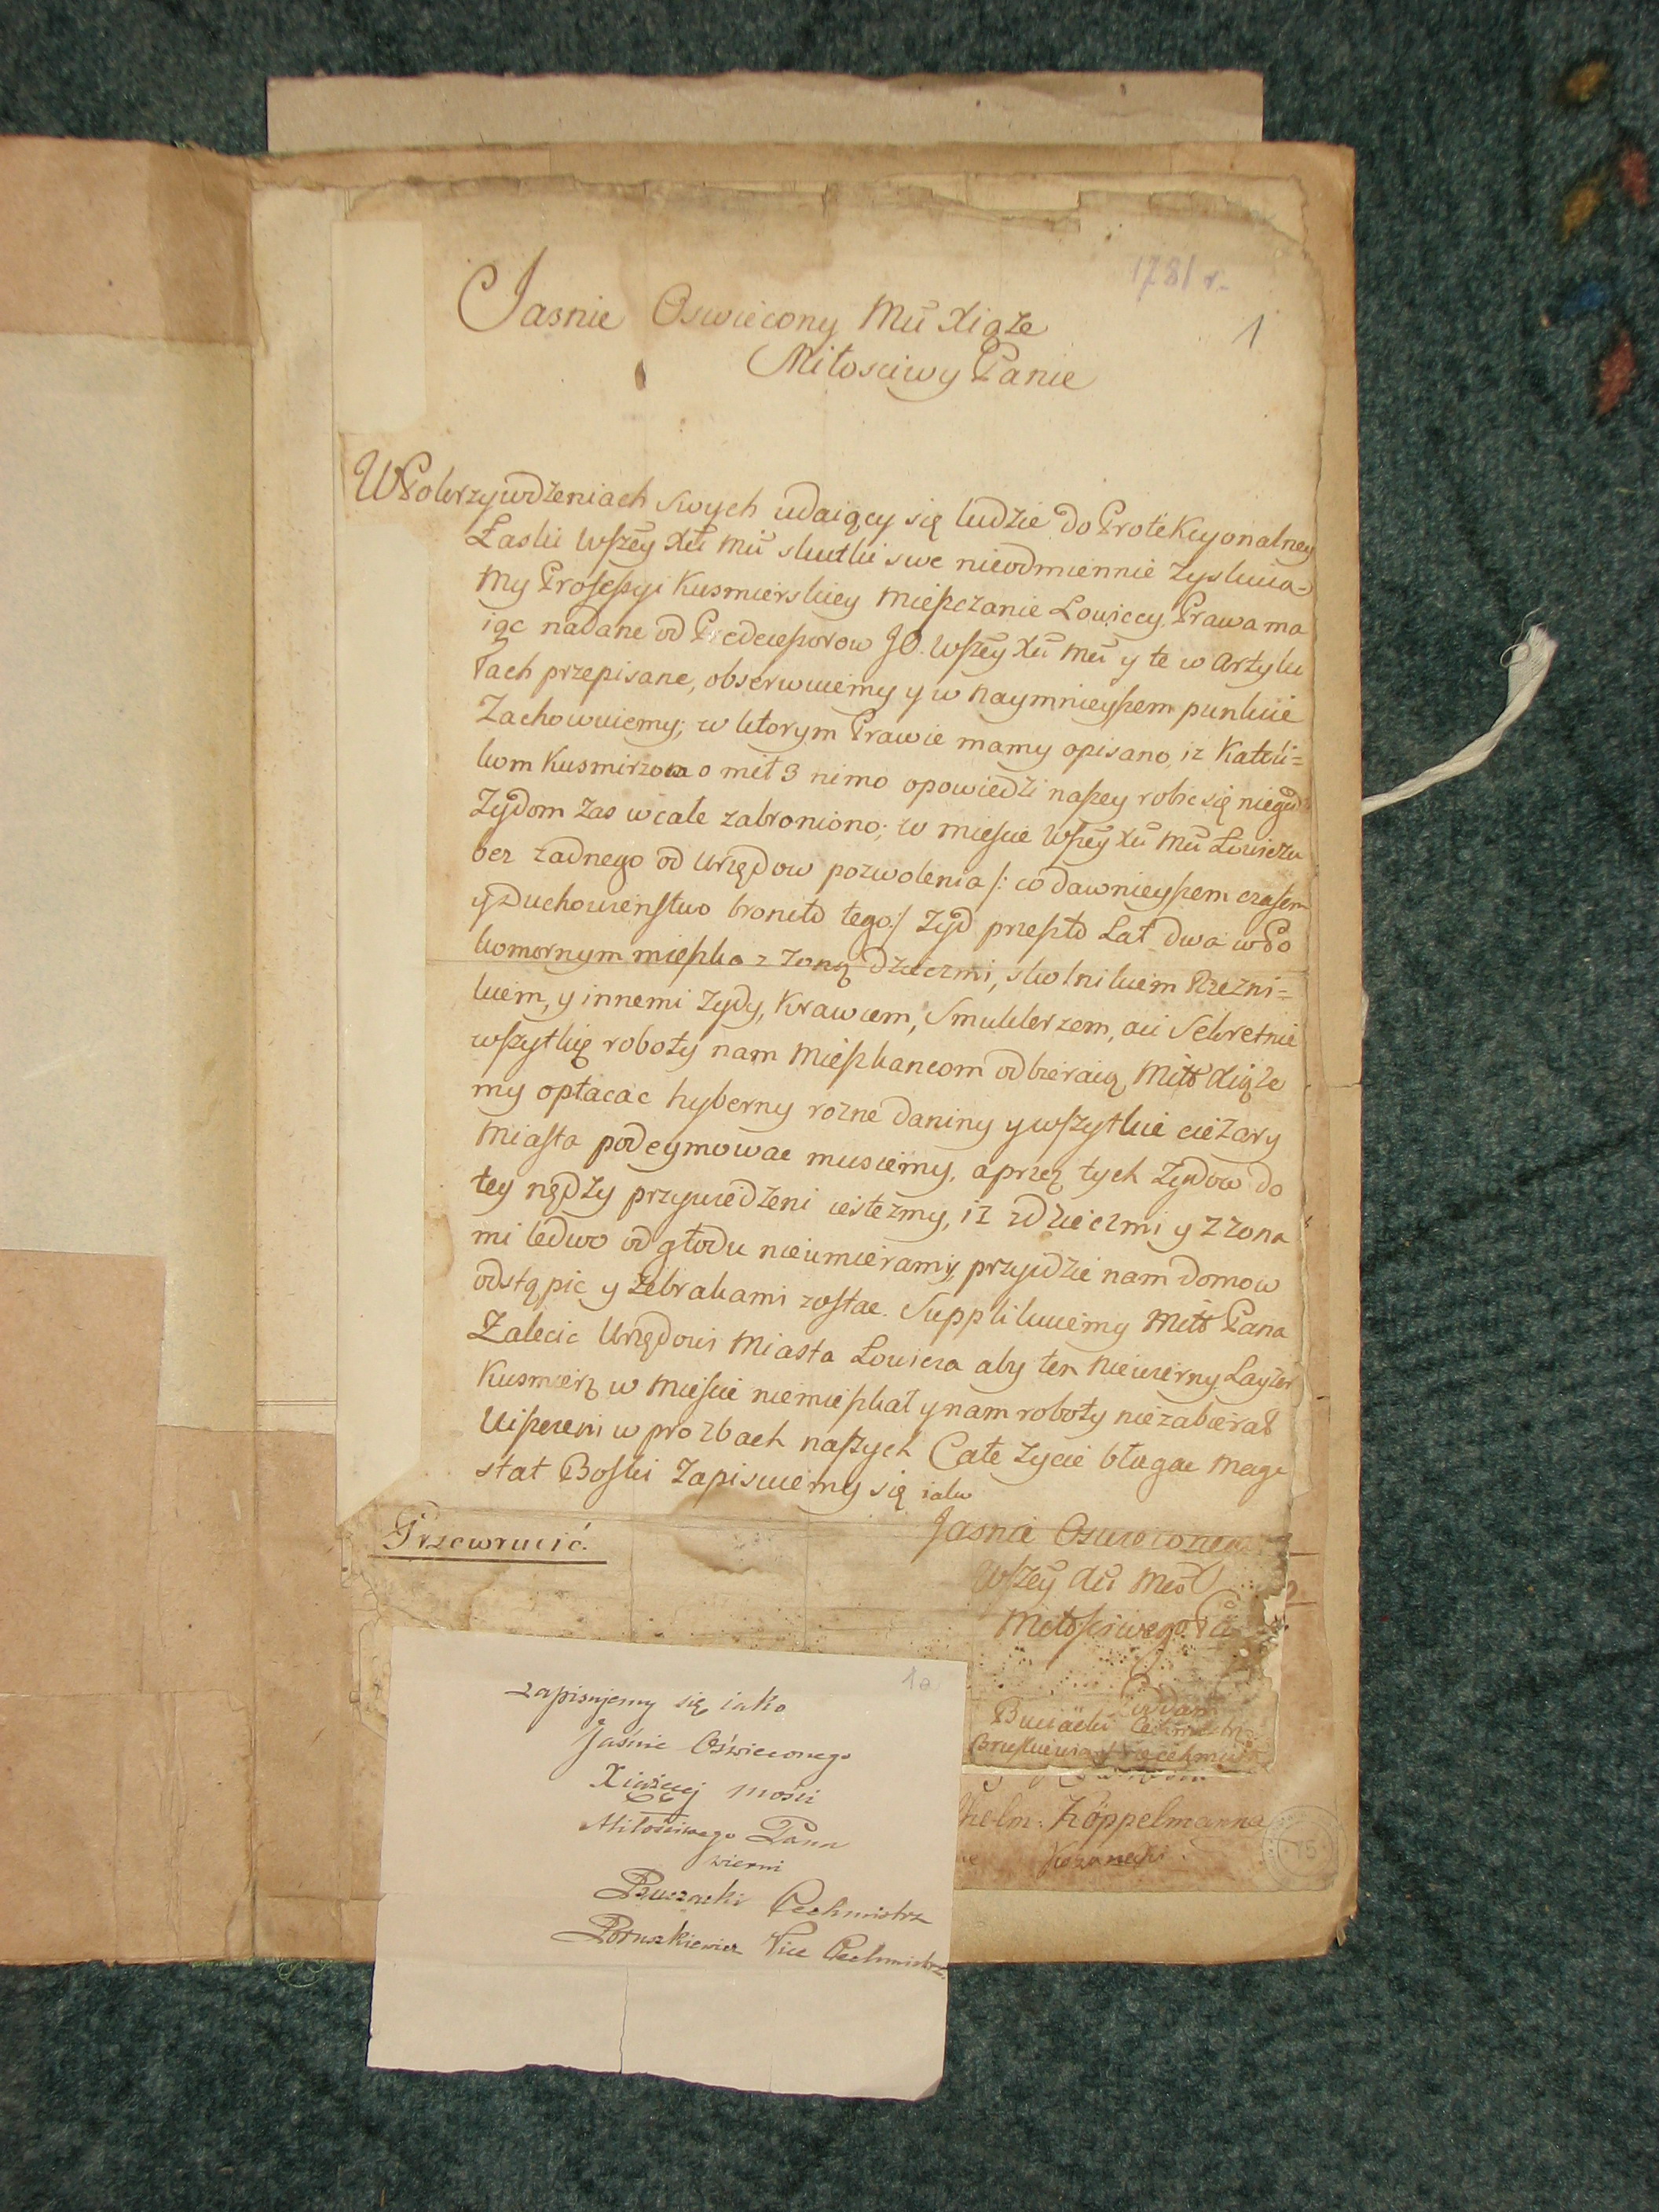 1781 r.
1
Jasnie Oswiecony Mci Xiąze
Miłosciwy Panie
W Pokrzywdzeniach swych udaiący się ludzie do Protekcyonalney
Łaski Wszey Xcı Mci skutki swe nieodmiennie zyskuia=
My Professyi Kusmierskiey Mieszczanie Łowiccy, Prawa ma
iąc nadane od Predecessorow JO. Wszey Xcı Mci y te w Artyku
łach przepisane, obserwuiemy y w naymnieyszem punkcie
Zachowuiemy; w ktorym Prawie mamy opisano, iz Katoli=
kom Kusmirzom o mil 3 nimo opowiedzi naszey robic się niegodzi
Zydom zas wcale zabroniono; w miescie Wszey Xcı Mci Łowiczu
bez zadnego od Urzędow pozwolenia /: co dawnieyszem czasem
y Duchowienstwo broniło tego:/ Zyd przeszło Lat dwa w Po
komornym mieszka z Zoną dziecmi, skolnikiem Rzezni=
kiem, y innemi Zydy, Krawcem, Smuklerzem, ci Sekretnie
wszytkię roboty nam Mieszkancom odbieraią, Miło Xiąże
my opłacac hyberny rozne daniny y wszytkie cięzary
Miasta podeymowac musiemy, a przez tych Zydow do
tey nędzy przywiedzeni iestezmy, iz z dziecmi y z zona
mi ledwo od głodu nieumieramy, przyidzie nam domow
odstąpic y żebrakami zostac. Supplikuiemy Miło Pana
Zalecic Urzędowi Miasta Łowicza aby ten niewierny Layzer
Kusmierz w Miescie niemieszkał y nam roboty niezabierał
Uiszczeni w prozbach naszych Całe zycie błagac Mage
stat Boski Zapisuiemy się iako
Jasnie Oswieconego
Wszey Xcı Mci
Miłosciwego Pa
Przewrucić.
Poddani
Buczacki Cechmistrz
Bruszkiewicz Vicecechmistrz
helm: Köppelmanna
Kozanecki
15
1a
zapisujemy się iako
Jaśnie Oświeconego
Xiążęcej Mości
Miłościwego Pana
wierni
Buczacki Cechmistrz
Botuszkiewicz Vice Cechmistrz.